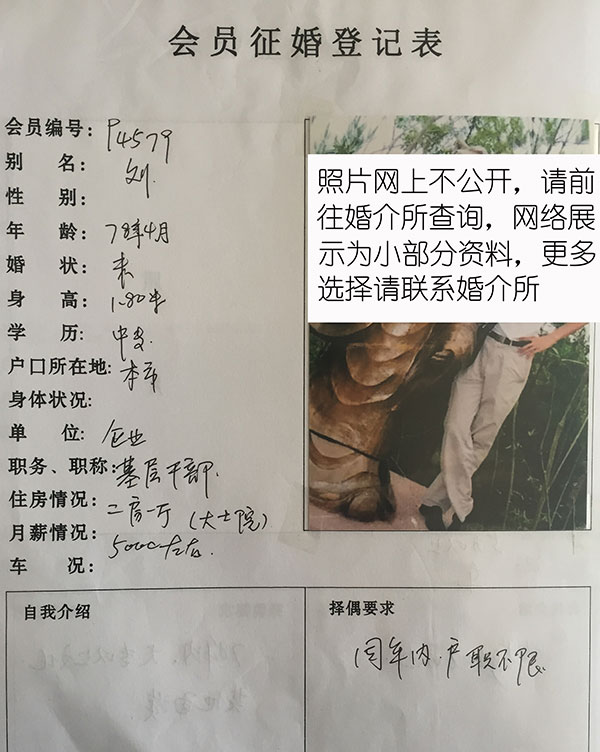 会员征婚登记表
会员编号：P4579
别 名：刘.
性 别：
年 龄：78年4月
婚 状：未
身 高：1.80米
学 历：中专
户口所在地：本市
身体状况:
单 位：企业
职务、职称：基层干部.
住房情况：二房一厅（大士院）
月薪情况：5000左右.
车 况：
照片网上不公开，请前
往婚介所查询，网络展
示为小部分资料，更多
选择请联系婚介所
自我介绍
择偶要求
同年内.户职不限